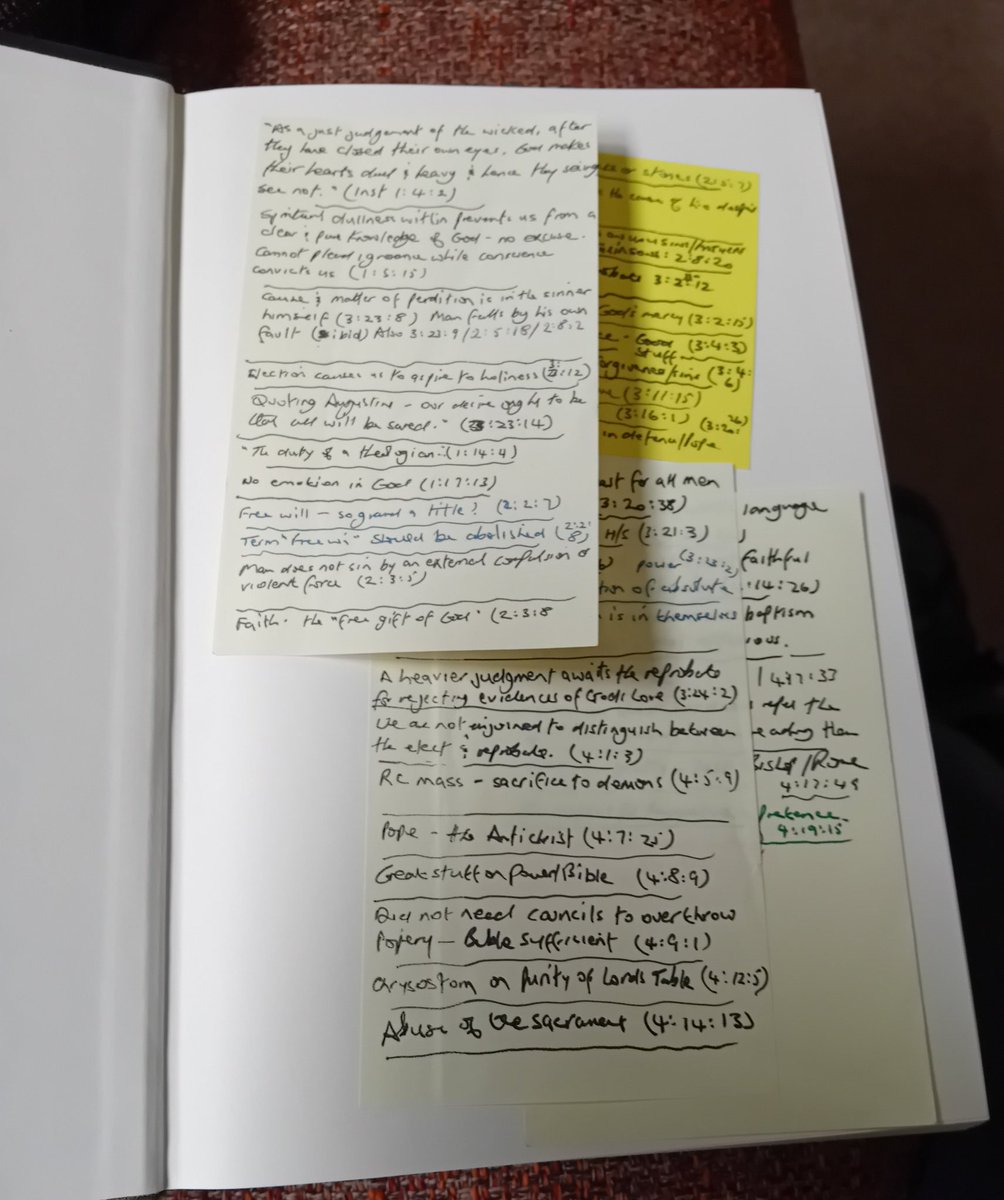 "As a just judgement of the wicked, after
they have closed their own eyes, God makes
their hearts dull & heavy & hence they seeing
see not." (Inst 1:4:2)
Spiritual dullness within prevents us from a
clear & pure knowledge of God - no excuse.
Cannot plead ignorance while conscience
convicts us (1:5:15)
Cause & matter of perdition is in the sinner
himself (3:23:8) Man falls by his own
fault (ibid) Also 3:23:9/2:5:18/2:8:2
Election causes us to aspire to holiness (:12)
Quoting Augustine - our desire ought to be
that all will be saved." (3:23:14)
"The duty of a theologian." (1:14:4)
No emotion in God (1:17:13)
Free will - so grand a title? (2:2:7)
Term "Free will" should be abolished (2:2:8)
Man does not sin by an external compulsion or
violent force (2:3:5)
Faith - the "free gift of God" (2:3:8
or stones (2:5:7)
: 2:8:20
3:2:12
God's mercy (3:2:15)
- Good stuff (3:4:3)
forgiveness/ (3:4:6)
(3:11:15)
(3:16:1) (3:20:26)
in defence/Pope
for all men
3:20:38)
H/S (3:21:3)
power (3:23:2)
of absolute
is in themselves
A heavier judgment awaits the reprobate
for rejecting evidences of God's Love (3:24:2)
We are not enjoined to distinguish between
the elect & reprobate. (4:1:3)
RC mass - sacrifice to demons (4:5:9)
Pope - the Antichrist (4:7:25)
Great stuff on Power/Bible (4:8:9)
Did not need councils to overthrow
Popery - Bible sufficient (4:9:1)
Chrysostom on Purity of Lords Table (4:12:5)
Abuse of the sacrament (4:14:13)
language
faithful
:14:26)
baptism
4:17:33
refer the
Bishop/Rome
4:17:49
pretence.
4:19:15